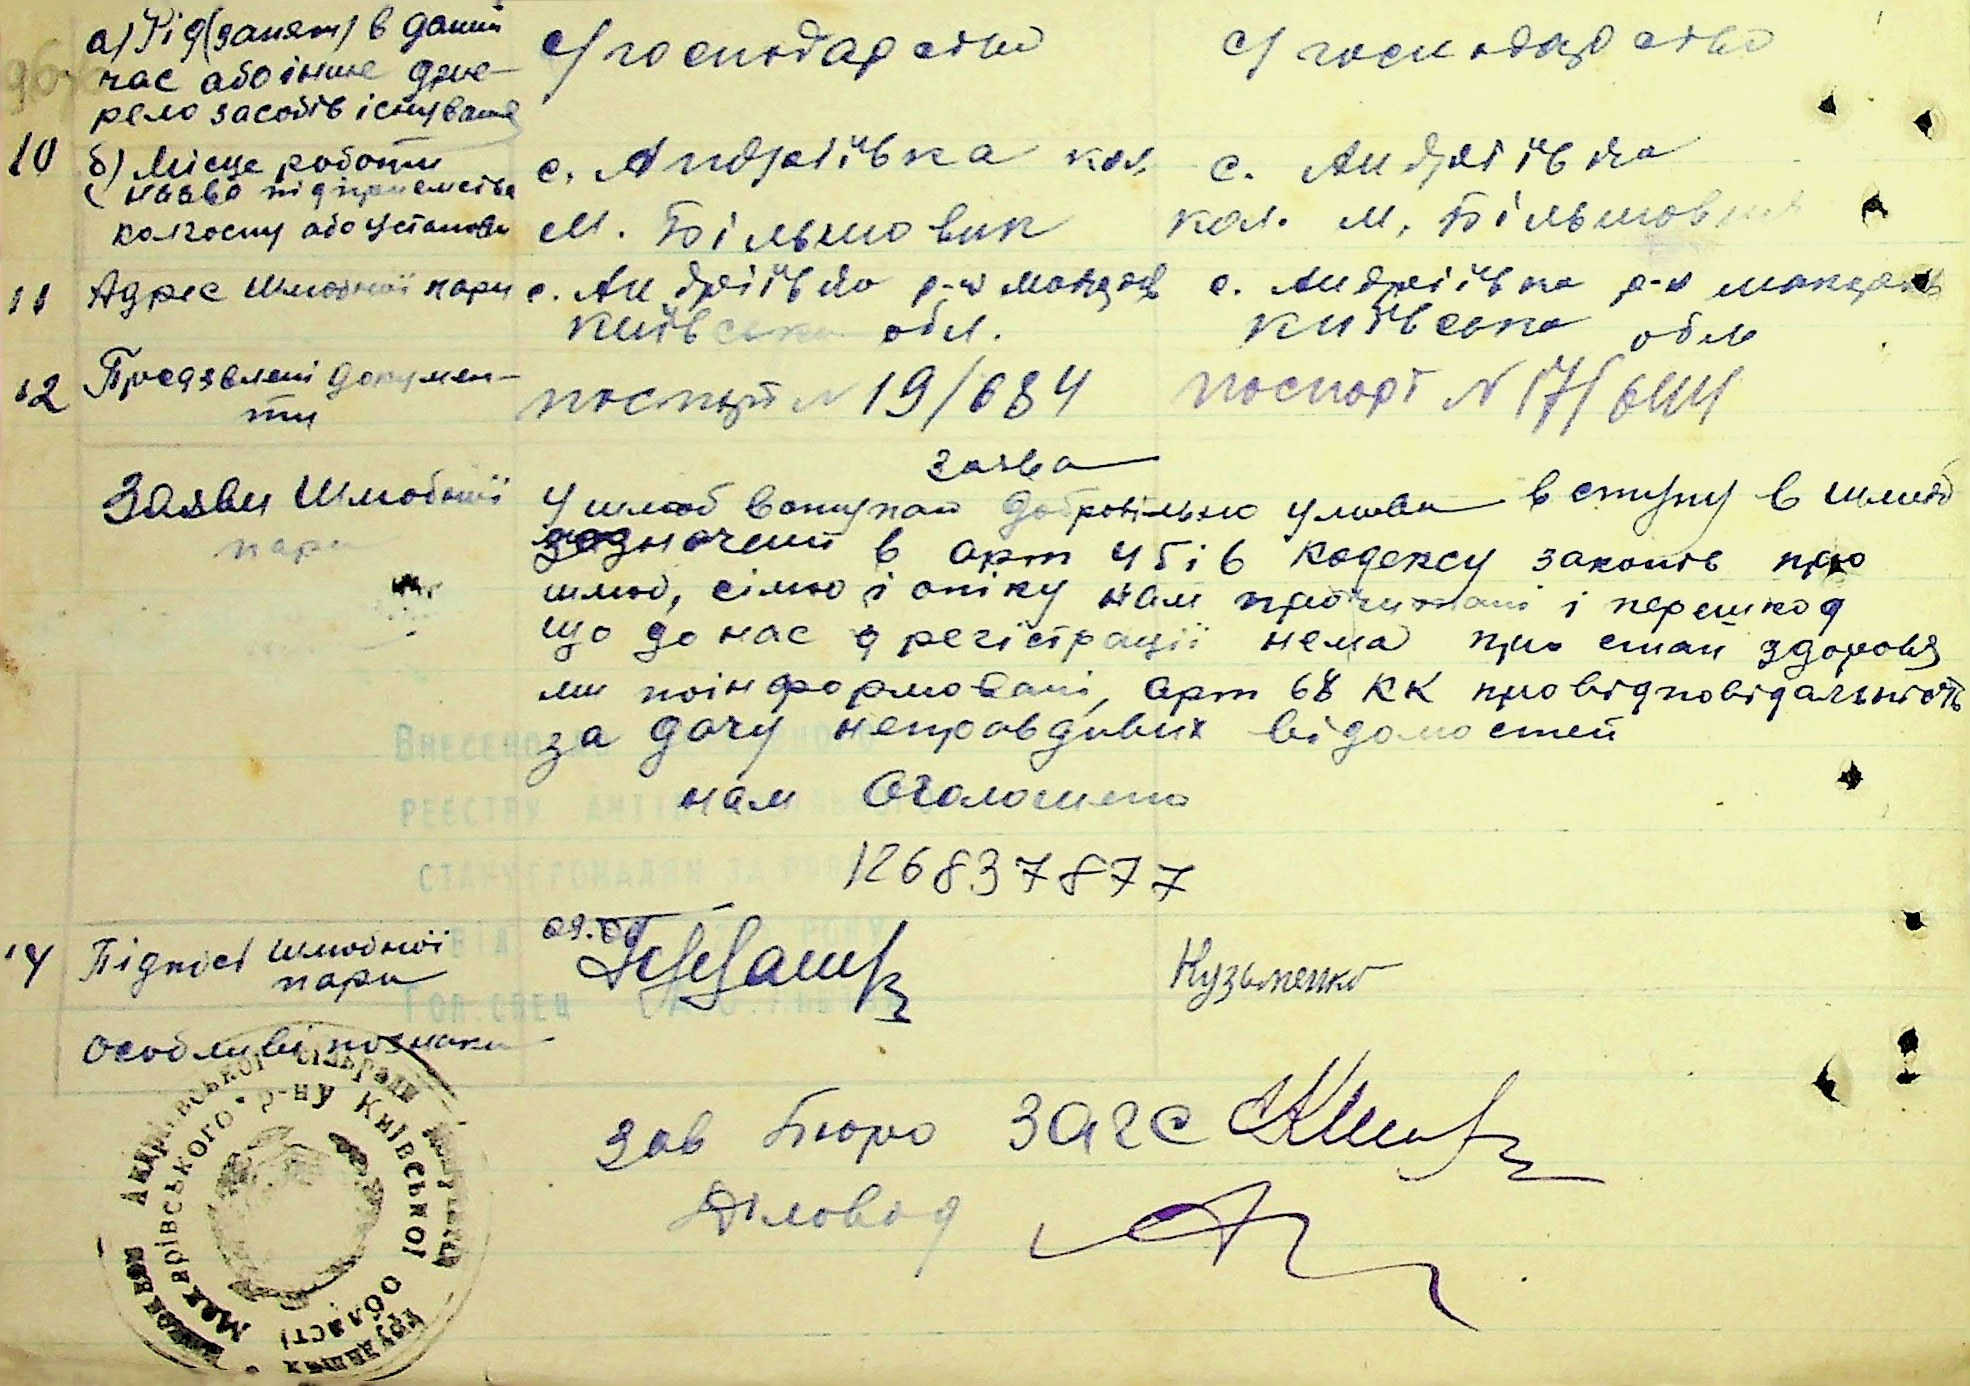 а) Рід (занят) в даний
час або інше дже-
рело засобів існування
с/господарство
с/господарство
10
б) Місце роботи
назва підприємства
колгоспу або установи
с. Андріївка кол.
М. Більшовик
с. Андріївка
кол. М. Більшовик
11
Адрес Шлюбної пари
с. Андріївка р-н Макарів
Київська обл.
с. Андріївка р-н Макарів
Київська обл
12
Предявлені докумен-
ти
паспорт N 19/684
паспорт N 17/644
Заяви Шлюбної
пари
заява
У шлюб вступаєм добровільно умови вступу в шлюб
зазначені в арт 4 5 і 6 Кодексу законів про
шлюб, сімю і опіку нам прочитані і перешкод
що до нас регістрації нема про стан здоровя
ми поінформовані, арт 68 КК про відповідальність
за дачу неправдивих відомостей
нам Оголошено
126837877
Внесено
РЕЄСТРУ АКТІВ
СТАНУ ГРОМАДЯН ЗА
ВІД РОКУ
ГОЛ.СПЕЦ
14
Підписі шлюбної
пари
Кузьменко
Особливі познаки
Андріївської сільради
Макарівського р-ну Київської області
зав Бюро ЗАГС
Діловод